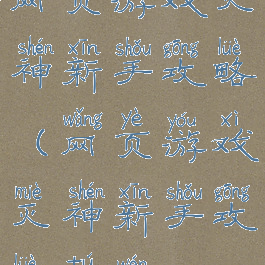 网页游戏灭
shén xīn shǒu gōng lüè
神新手攻略
wǎng yè yóu xì
(网页游戏
miè shén xīn shǒu gōng
灭神新手攻